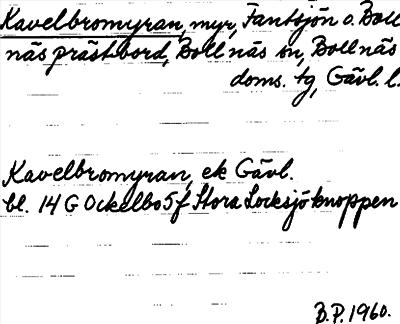 Kavelbromyran, myr, Fantsjön o. Boll
näs prästbord, Bollnäs sn, Bollnäs
doms. tg, Gävl. l.
Kavelbromyran, ek Gävl.
bl. 14 G Ockelbo 5f Stora Locksjöknoppen
B.P. 1960.